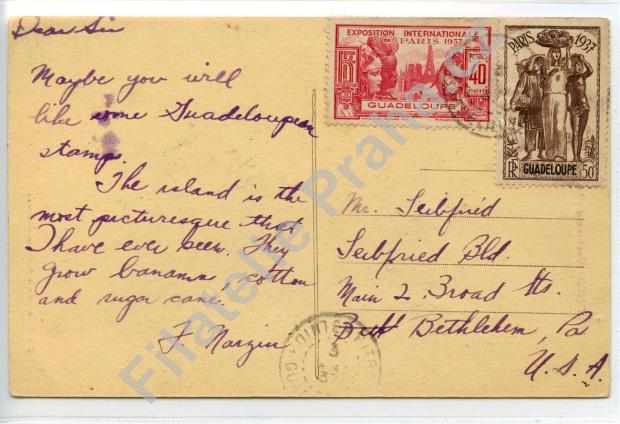 Dear Sir
Maybe you will
like some Guadeloupean
stamp.
The island is the
most picturesque that
I have ever seen. They
grow banana, cotton
and sugar cane.
EXPOSITION INTERNATIONALE
PARIS 1937
POSTES
40
GUADELOUPE
PARIS 1937
RF GUADELOUPE 50c
Mr. Seibfried
Seibfried Bld.
Main 2 Broad Sts.
Beth Bethlehem, Pa
U. S. A.
POINTE A PITRE
3
Filatelie Praha.cz